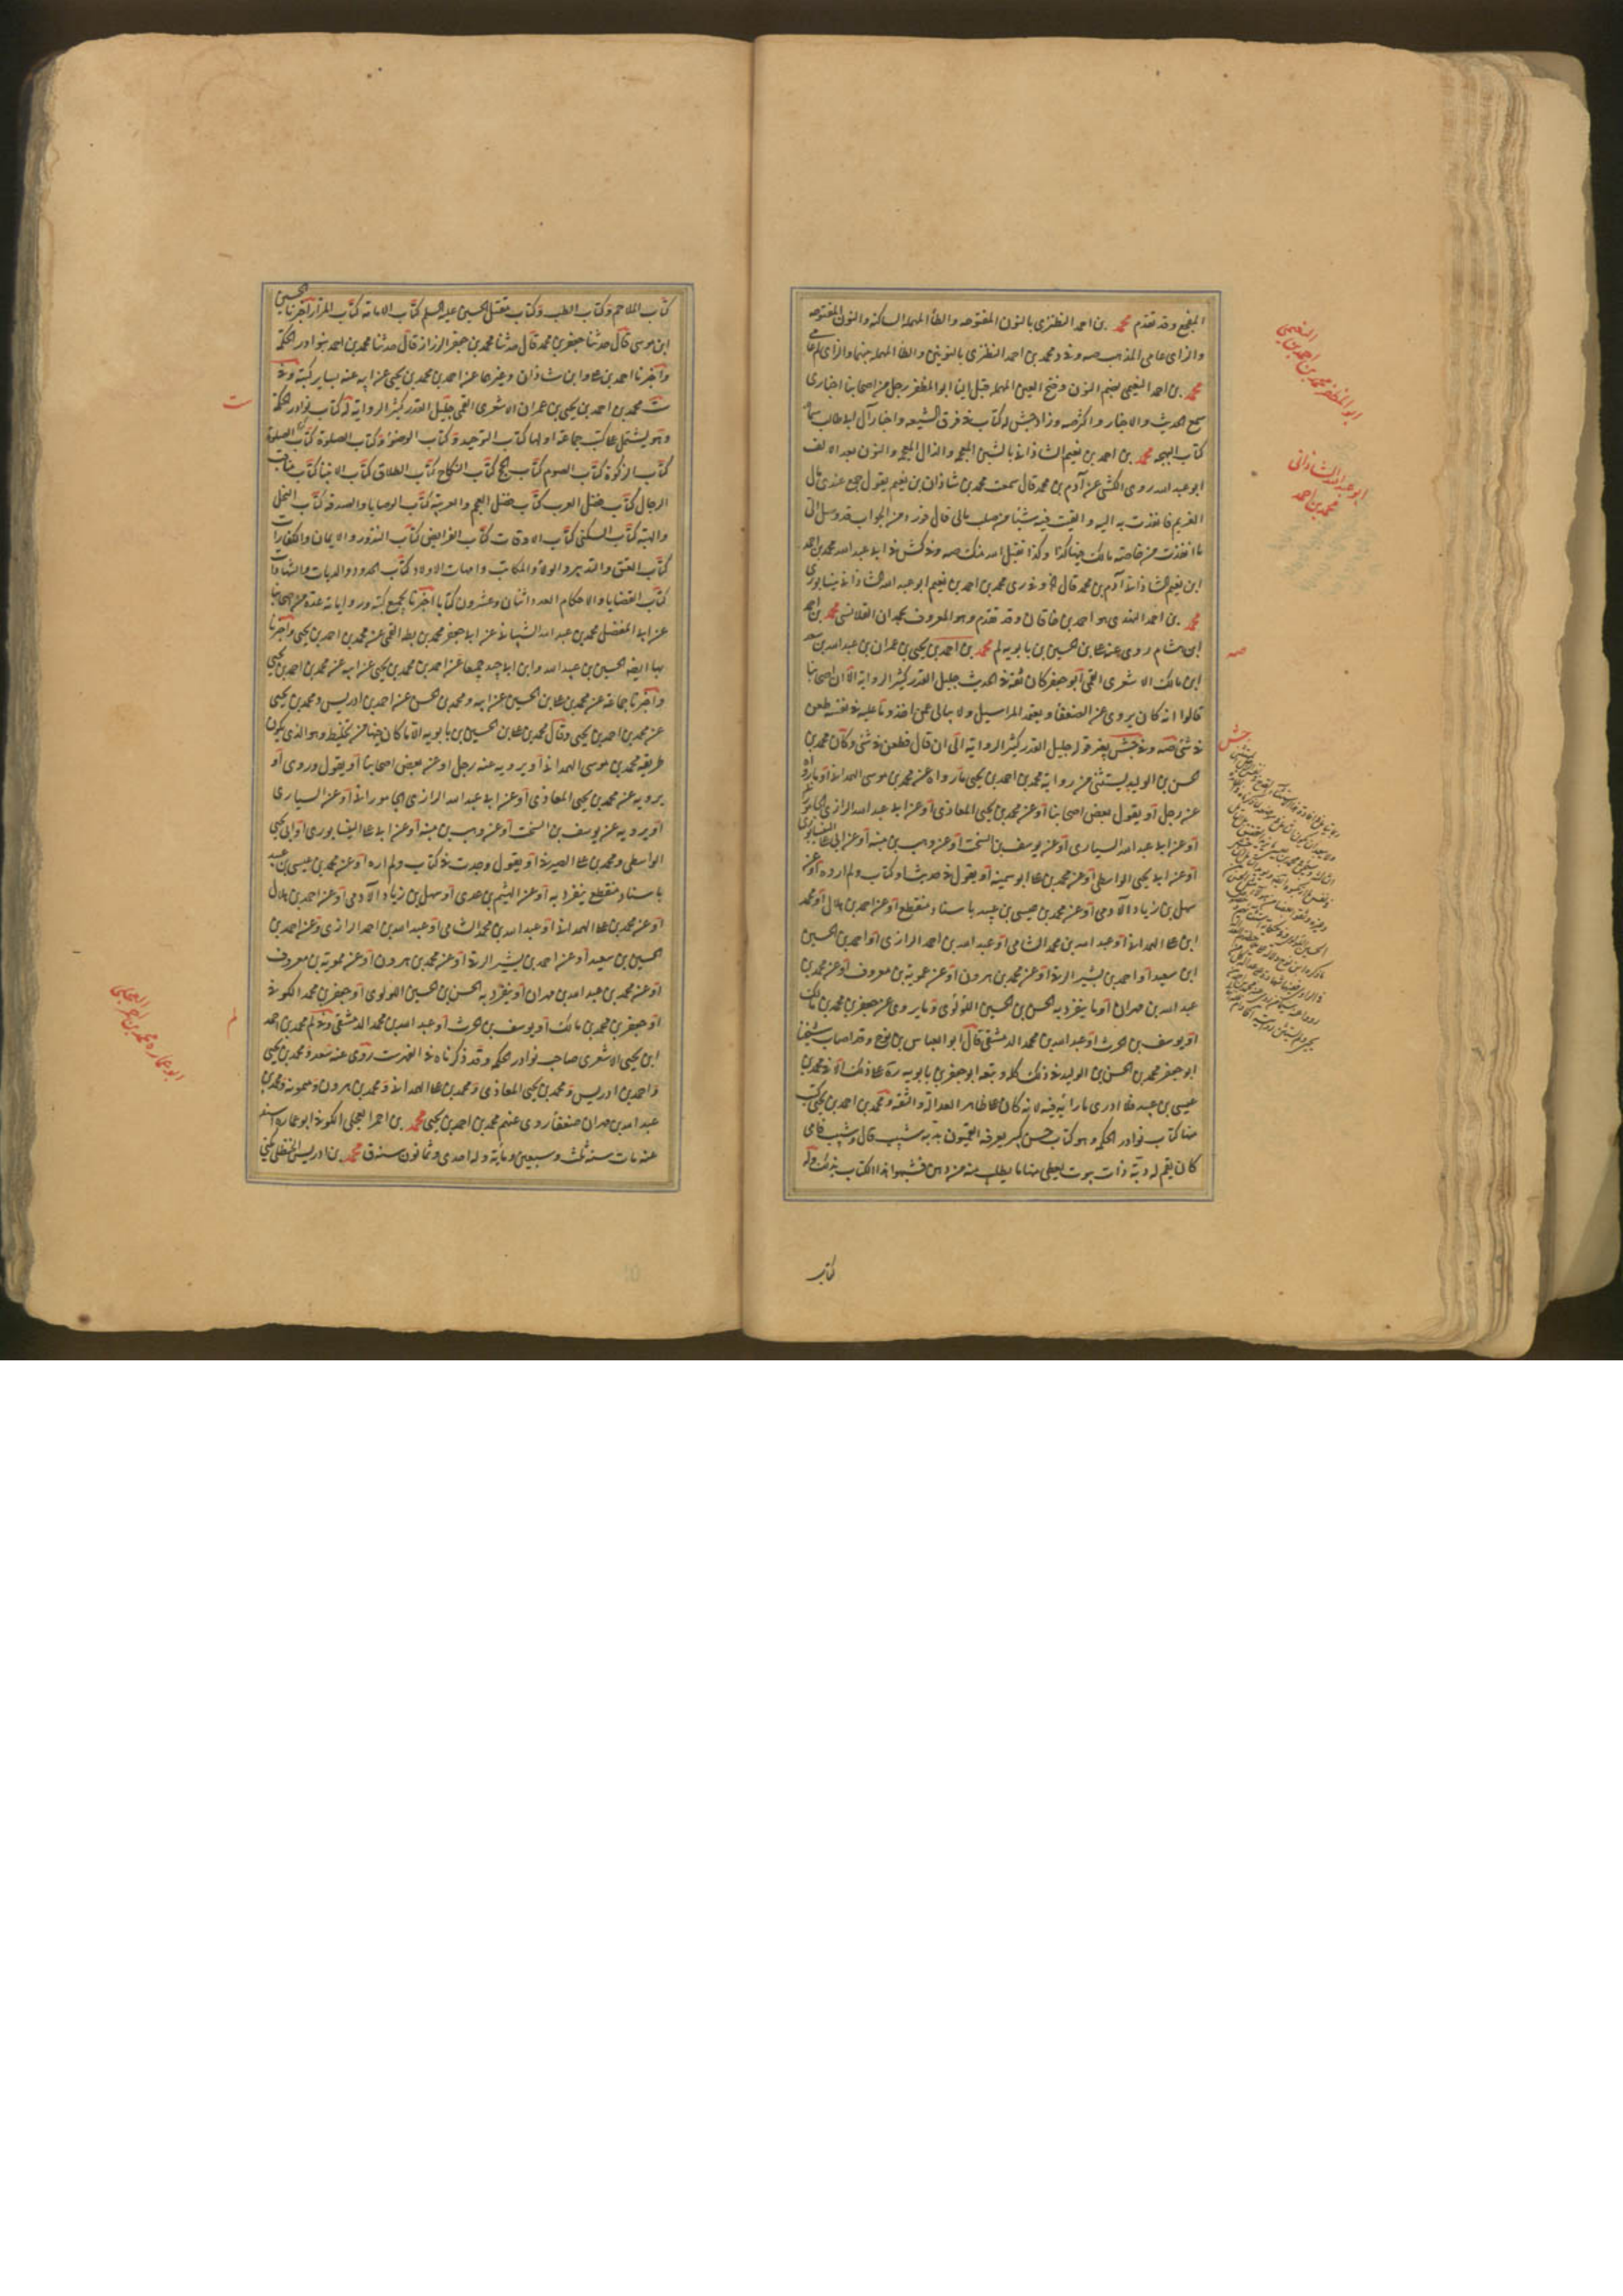 المفجع وقد تقدم محمد بن احمد النطنزى بالنون المفتوحه والطاء المهملة الساكنة والنون المفتوحه
والزاى عامى المذهب صه وفى د محمد بن احمد النطنزى بالنونين والطاء المهملة بينهما والزاى
محمد بن احمد النعيمى بضم النون وفتح العين المهملة قبل الياء ابو المظفر رجل من اصحابنا اخبارى
سمع الحديث والاخبار واكثر صه وزاد جش له كتاب فى فرق الشيعه واخبار آل ابى طالب
كتاب البهجه محمد بن احمد بن نعيم الشاذانى بالشين المعجمه والذال المعجمه والنون بعد الالف
ابو عبد الله روى الكشى عن آدم بن محمد قال سمعت محمد بن شاذان بن نعيم يقول جمع عندى مال
الغريم فانفذت به اليه والقيت فيه شيئا من صلب مالى قال فورد من الجواب قد وصل الى
ما انفذت من خاصة مالك فيها كذا وكذا فقبل الله منك صه وفى كش فى ابى عبد الله محمد بن احمد
ابن نعيم الشاذانى آدم بن محمد قال وفى رى محمد بن احمد بن نعيم ابو عبد الله الشاذانى نيشابورى
محمد بن احمد النهدى هو احمد بن خاقان وقد تقدم وهو المعروف بحمدان القلانسى محمد بن احمد
ابن هشام روى عنه على بن الحسين بن بابويه لم محمد بن احمد بن يحيى بن عمران بن عبد الله بن سعد
ابن مالك الاشعرى القمى ابو جعفر كان ثقة فى الحديث جليل القدر كثير الرواية الا ان اصحابنا
قالوا انه كان يروى عن الضعفا ويعتمد المراسيل ولا يبالى عمن اخذ وما عليه فى نفسه طعن
فى شئ صه وفى جش بغير قوله جليل القدر كثير الرواية الى ان قال طعن فى شئ وكان محمد بن
الحسن بن الوليد يستثنى من رواية محمد بن احمد بن يحيى ما رواه عن محمد بن موسى الهمدانى او ما رواه
عن رجل او يقول بعض اصحابنا او عن محمد بن يحيى المعاذى او عن ابى عبد الله الرازى الجامورانى
او عن ابى عبد الله السيارى او عن يوسف بن السخت او عن وهب بن منبه او عن ابى على النيشابورى
او عن ابى يحيى الواسطى او عن محمد بن على ابو سمينه او يقول فى حديث او كتاب ولم اروه او عن
سهل بن زياد الآدمى او عن محمد بن عيسى بن عبيد باسناد منقطع او عن احمد بن هلال او محمد
ابن على الهمدانى او عبد الله بن محمد الشامى او عبد الله بن احمد الرازى او احمد بن الحسين
ابن سعيد او احمد بن بشير الرقى او عن محمد بن هرون او عن ممويه بن معروف او عن محمد بن
عبد الله بن مهران او ما ينفرد به الحسن بن الحسين اللؤلؤى وما يروى عن جعفر بن محمد بن مالك
او يوسف بن الحرث او عبد الله بن محمد الدمشقى قال ابو العباس بن نوح وقد اصاب شيخنا
ابو جعفر محمد بن الحسن بن الوليد فى ذلك كله وتبعه ابو جعفر بن بابويه ره على ذلك الا فى محمد بن
عيسى بن عبيد فلا ادرى ما رابه فيه لانه كان على ظاهر العدالة والثقة ولمحمد بن احمد بن يحيى كتب
منها كتاب نوادر الحكمه وهو كتاب حسن كبير يعرفه القميون بدبه شبيب قال وشبيب فامى
كان بقم له دبة ذات بيوت يعطى منها ما يطلب منه من دهن فشبهوا هذا الكتاب بذلك وله
كتاب
ابو المظفر محمد بن احمد بن النعيمى
ابو عبد الله الشاذانى
محمد بن احمد
صه
جش
كتاب الملاحم وكتاب الطب وكتاب مقتل الحسين عليه السلم كتاب الامامة كتاب المزار اخبرنا الحسين
ابن موسى قال حدثنا جعفر بن محمد قال حدثنا محمد بن جعفر الرزاز قال حدثنا محمد بن احمد بنوادر الحكمة
واخبرنا احمد بن على وابن شاذان وغيرهما عن احمد بن محمد بن يحيى عن ابيه عنه بساير كتبه وفى
ست محمد بن احمد بن يحيى بن عمران الاشعرى القمى جليل القدر كثير الرواية له كتاب نوادر الحكمة
وهو يشتمل على كتب جماعة اولها كتاب التوحيد وكتاب الوضوء وكتاب الصلوة كتاب الصلوة
كتاب الزكوة كتاب الصوم كتاب الحج كتاب النكاح كتاب الطلاق كتاب الانبيا كتاب مناقب
الرجال كتاب فضل العرب كتاب فضل العجم والعربية كتاب الوصايا والصدقة كتاب النحل
والهبة كتاب السكنى كتاب الاوقات كتاب الفرايض كتاب النذور والايمان والكفارات
كتاب العتق والتدبير والولاء والمكاتب وامهات الاولاد كتاب الحدود والديات والشهادات
كتاب القضايا والاحكام العدد اثنان وعشرون كتابا اخبرنا بجميع كتبه ورواياته عدة من اصحابنا
عن ابى المفضل محمد بن عبد الله الشيبانى عن ابى جعفر محمد بن بطة القمى عن محمد بن احمد بن يحيى واخبرنا
بها ايضا الحسين بن عبيد الله وابن ابى جيد جميعا عن احمد بن محمد بن يحيى عن ابيه عن محمد بن احمد بن يحيى
واخبرنا جماعة عن محمد بن على بن الحسين عن ابيه ومحمد بن الحسن عن احمد بن ادريس ومحمد بن يحيى
عن محمد بن احمد بن يحيى وقال محمد بن على بن الحسين بن بابويه الا ما كان فيها من تخليط وهو الذى يكون
طريقه محمد بن موسى الهمدانى او يرويه عن رجل او عن بعض اصحابنا او يقول وروى او
يرويه عن محمد بن يحيى المعاذى او عن ابى عبد الله الرازى الجامورانى او عن السيارى
او يرويه عن يوسف بن السخت او عن وهب بن منبه او عن ابى على النيشابورى او ابى يحيى
الواسطى ومحمد بن على الصيرفى او يقول وجدت فى كتاب ولم اروه او عن محمد بن عيسى بن عبيد
باسناد منقطع ينفرد به او عن الهيثم بن عدى او سهل بن زياد الآدمى او عن احمد بن هلال
او عن محمد بن على الهمدانى او عبد الله بن محمد الشامى او عبد الله بن احمد الرازى وعن احمد بن
الحسين بن سعيد او عن احمد بن بشير الرقى او عن محمد بن هرون او عن ممويه بن معروف
او عن محمد بن عبد الله بن مهران او ينفرد به الحسن بن الحسين اللولوى او جعفر بن محمد الكوفى
او جعفر بن محمد بن مالك او يوسف بن الحرث او عبد الله بن محمد الدمشقى وفى لم محمد بن احمد
ابن يحيى الاشعرى صاحب نوادر الحكمه وقد ذكرناه فى الفهرست روى عنه سعد ومحمد بن يحيى
واحمد بن ادريس ومحمد بن يحيى المعاذى ومحمد بن على الهمدانى ومحمد بن هرون وممويه ومحمد بن
عبد الله بن مهران ضعفا روى عنهم محمد بن احمد بن يحيى محمد بن احمر العجلى الكوفى ابو عماره اسند
عنه مات سنه ثلث وسبعين ومائة وله احدى وثمانون سنة ق محمد بن ادريس الحنظلى يكنى
ست
لم
ابو عماره محمد بن احمر العجلى